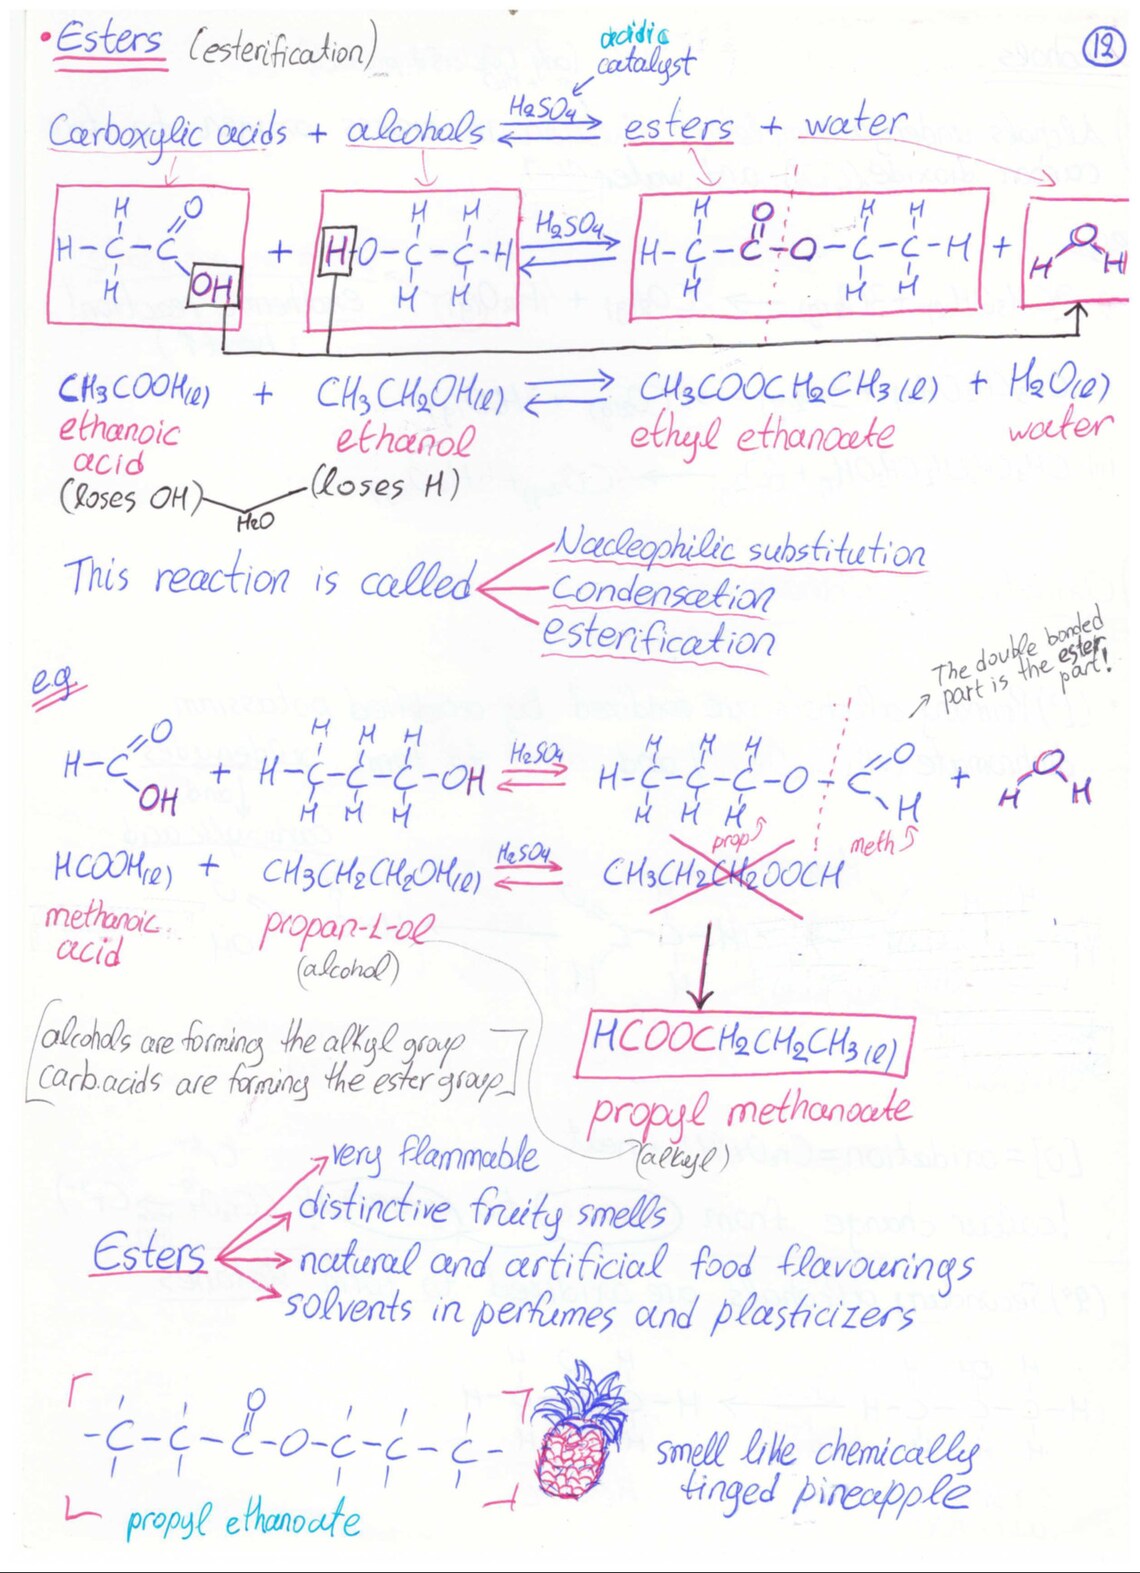 • Esters (esterification)
acidic
catalyst
12
Carboxylic acids + alcohols ⇌ esters + water
H2SO4
H H H H H
H-C-C O OH + H-O-C-C-H H2SO4 ⇌ H-C-C O-O-C-C-H + O H H
H H H H H H
CH3COOH(l) + CH3CH2OH(l) ⇌ CH3COOCH2CH3(l) + H2O(l)
ethanoic acid ethanol ethyl ethanoate water
(loses OH) (loses H)
H2O
This reaction is called
Nucleophilic substitution
Condensation
esterification
The double bonded
part is the ester
part!
e.g.
H-C O OH + H-C-C-C-OH H2SO4 ⇌ H-C-C-C-O-C O H + O H H
H H H H H H
prop meth
HCOOH(l) + CH3CH2CH2OH(l) H2SO4 ⇌ CH3CH2CH2OOCH
methanoic acid propan-1-ol
(alcohol)
HCOOCH2CH2CH3(l)
propyl methanoate
(alkyl)
[alcohols are forming the alkyl group
carb.acids are forming the ester group]
Esters
very flammable
distinctive fruity smells
natural and artificial food flavourings
solvents in perfumes and plasticizers
O
-C-C-C-O-C-C-C-
propyl ethanoate
smell like chemically
tinged pineapple